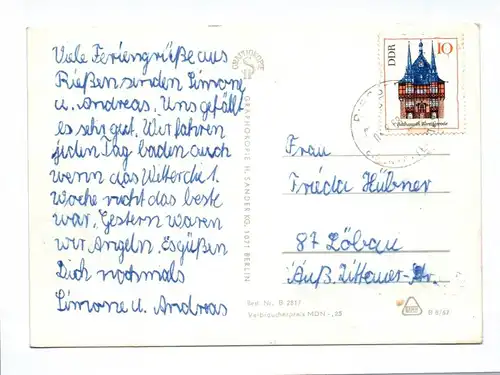 Viele Feriengrüße aus
Rießen senden Simone
u. Andreas. Uns gefällt
es sehr gut. Wir fahren
jeden Tag baden auch
wenn das Wetter die 1.
Woche nicht das beste
war. Gestern waren
wir Angeln. Es grüßen
Dich nochmals
Simone u. Andreas
GRAPHOKOPIE H. SANDER KG, 1071 BERLIN
Best. Nr. B 2517
Verbraucherpreis MDN -,25
DDR
10
Frau
Frieda Hübner
87 Löbau
Äuß. Zittauer-Str.